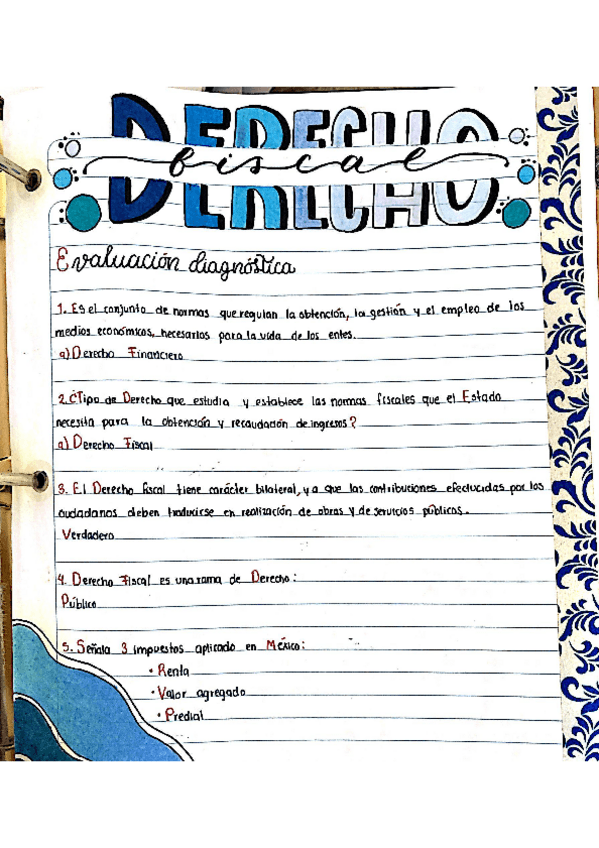 DERECHO
fiscal
Evaluación diagnóstica
1. Es el conjunto de normas que regulan la obtención, la gestión y el empleo de los
medios económicos, necesarios para la vida de los entes.
a) Derecho Financiero
2. ¿Tipo de Derecho que estudia y establece las normas fiscales que el Estado
necesita para la obtención y recaudación de ingresos?
a) Derecho Fiscal
3. El Derecho fiscal tiene carácter bilateral, ya que las contribuciones efectucidas por los
ciudadanos deben traducirse en realización de obras y de servicios públicos.
Verdadero
4. Derecho Fiscal es una rama de Derecho:
Público
5. Señala 3 impuestos aplicado en México:
• Renta
• Valor agregado
• Predial